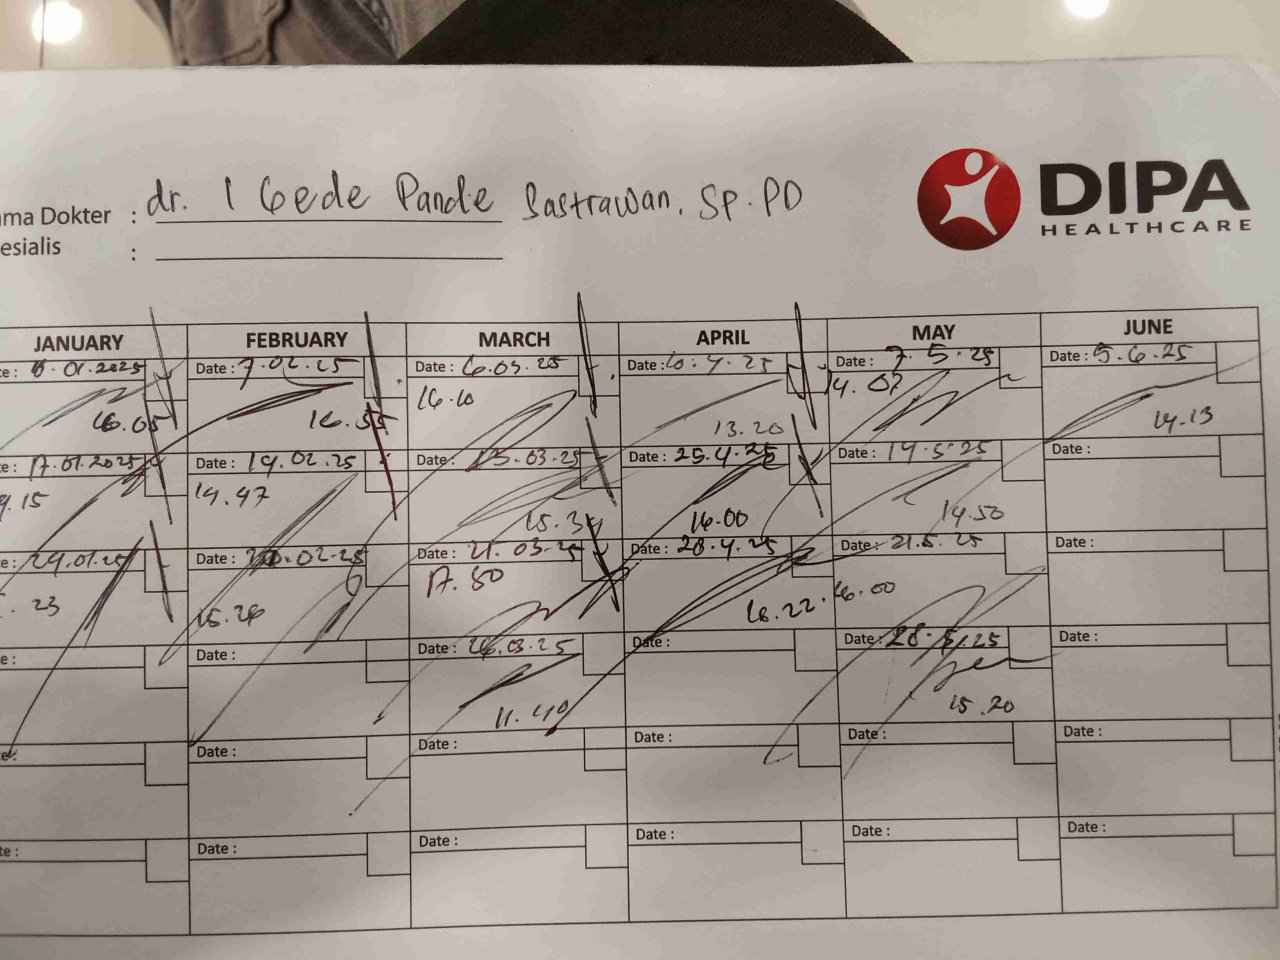 dr. I Gede Pande Sastrawan, Sp.PD
DIPA
HEALTHCARE
ama Dokter :
esialis :
JANUARY FEBRUARY MARCH APRIL MAY JUNE
e: .01.2025 Date : 7.02.25 Date : 6.03.25 Date : .4.25 Date : 7.5.25 Date : 5.6.25
16.05 16.55 16.10 13.20 14.07 14.13
e: 17.01.2025 Date : 19.02.25 Date : 13.03.25 Date : 25.4.25 Date : 14.5.25 Date :
.15 14.47 15.34 16.00 14.50
: 24.01.25 Date : .02.25 Date : 21.03.25 Date : 28.4.25 Date : 21.5.25 Date :
. 23 15.26 17.50 16.22 16.00
e: Date : Date : 26.03.25 Date : Date : 28.5.25 Date :
11.40 15.20
e: Date : Date : Date : Date : Date :
te : Date : Date : Date : Date : Date :